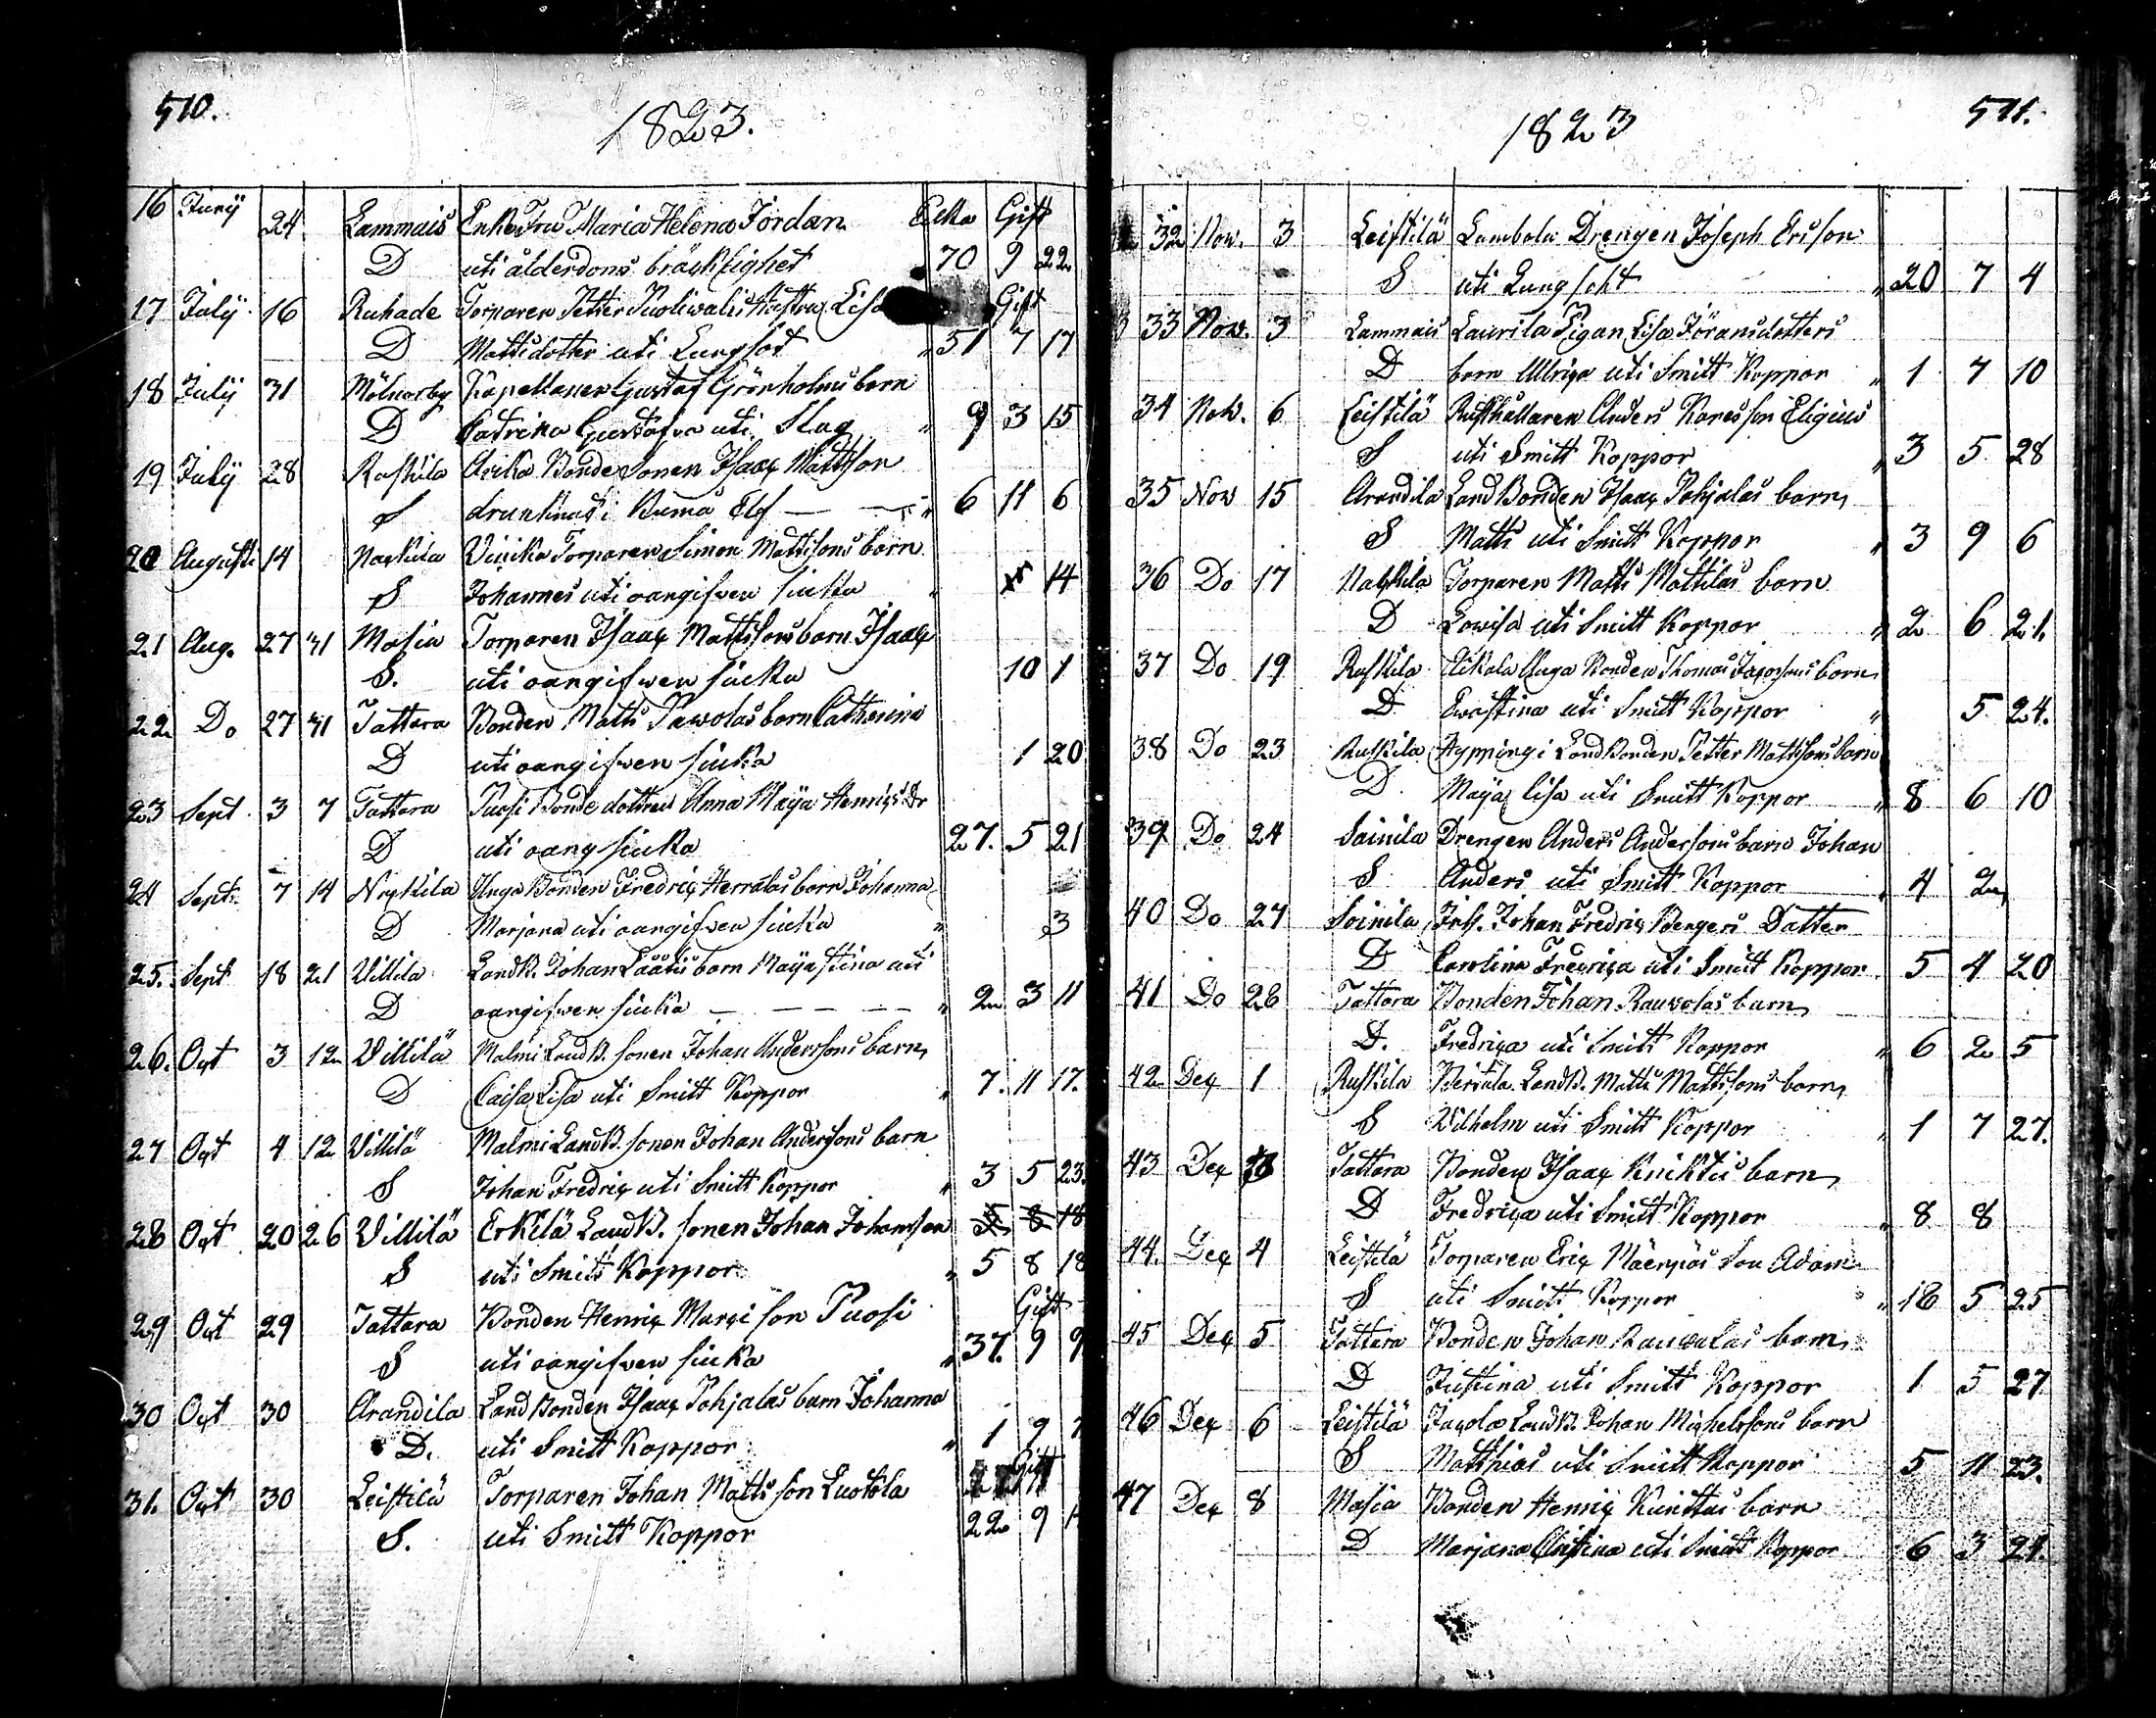 510.
1823.
16 Junij 24. Lammais Enke Fru Maria Helena Jordan Enka Gift
D uti ålderdoms bräcklighet 70 9 22
17 Julij 16 Ruhade Torparen Petter Hustru Lisa Gift
D Mattsdotter uti Lungsot " 51 7 17
18 Julij 31 Mölnorby Kapellanen Gustaf Grönholms barn
D Catrina Gustafva uti Slag " 9 3 15
19 Julij 28 Raskila Bonde Sonen Isaac Mattson
S drunknad i Kumå Elf — — " 6 11 6
20 Augusti 14 Naskila Torparen Simon Mattsons barn
S Johannes uti oangifven siuka " 14
21 Aug. 27 31 Masia Torparen Isaac Mattsons barn Isaac
S. uti oangifwen siuka 10 1
22 Do 27 31 Tattara Bonden Matts Pawolas barn Catherina
D uti oangifwen siuka 1 20
23 Sept. 3 7 Tattara Puosi Bonde dottren Anna Maija Henrics Dr
D uti oang siuka 27. 5 21
24 Sept. 7 14 Unga Bonden Fredric Herralas barn Johanna
D Marjana uti oangifven siuka " 3
25. Sept 18 21 Villila LandB. Johan Läätis barn Maijastina uti
D oangifwen siuka — — — — " 2 3 11
26. Oct 3 12 Villilä Malmi LandB. sonen Johan Anderssons barn
D Caisa Lisa uti Smitt Koppor " 7. 11 17.
27 Oct 4 12 Villilä Malmi LandB. sonen Johan Anderssons barn
S Johan Fredric uti Smitt Koppor " 3 5 23.
28 Oct 20 26 Villilä Erkilä LandB. sonen Johan Johansson 5 8 18
S uti Smitt Koppor " 5 8 18
29 Oct 29 Tattara Bonden Henric Marci son Puosi Gift
S uti oangifven siuka " 37. 9 9
30 Oct 30 Arandila LandBonden Isaac Pohjalas barn Johanna
D. uti Smitt Koppor " 1 9
31. Oct 30 Leistilä Torparen Johan Matts son Luotola Gift
S. uti Smitt Koppor 22 9
1823
511.
32 Nov. 3 Leistilä Lambola Drengen Joseph Ersson
S uti Lungsot " 20 7 4
33 Nov. 3 Lammais Laurila Pigan Lisa Jöransdotters
D barn Ullrica uti Smitt Koppor " 1 7 10
34 Nov. 6 Leistilä Rusthållaren Anders Kares son Eligius
S uti Smitt Koppor " 3 5 28
35 Nov 15 Arandila LandBonden Isaac Pohjalas barn
S Matts uti Smitt Koppor " 3 9 6
36 Do 17 Naskila Torparen Matts Mattilas barn
D Lowisa uti Smitt Koppor " 2 6 21.
37 Do 19 Raskila Unga Bonden Thomas Jacossons barn
D Ewastina uti Smitt Koppor " 5 24.
38 Do 23 Ruskila Hyppingi LandBonden Petter Mattsons barn
D. Maija Lisa uti Smitt Koppor " 8 6 10
39 Do 24 Soinila Drengen Anders Anderssons barn Johan
S Anders uti Smitt Koppor " 4 2
40 Do 27 Soinila Johan Fredric Bergers Datter
D Carolina Fredrica uti Smitt Koppor 5 4 20
41 Do 28 Tattara Bonden Johan Rauvolas barn
D. Fredrica uti Smitt Koppor " 6 2 5
42 Dec 1 Ruskila LandB. Matts Mattsons barn
S Vilhelm uti Smitt Koppor " 1 7 27.
43 Dec Tattara Bonden Isaac barn
D Fredrica uti Smitt Koppor " 8 8
44. Dec 4 Leistilä Torparen Eric Mäenpäs son Adam
S uti Smitt Koppor " 18 5 25
45 Dec 5 Tattara Bonden Johan Rauvalas barn
D Justina uti Smitt Koppor 1 5 27
46 Dec 6 Leistilä LandB. Johan Michelsons barn
S Matthias uti Smitt Koppor 5 11 23.
47 Dec 8 Masia Bonden Henric Kunittus barn
D Marjana Christina uti Smitt Koppor 6 3 21.